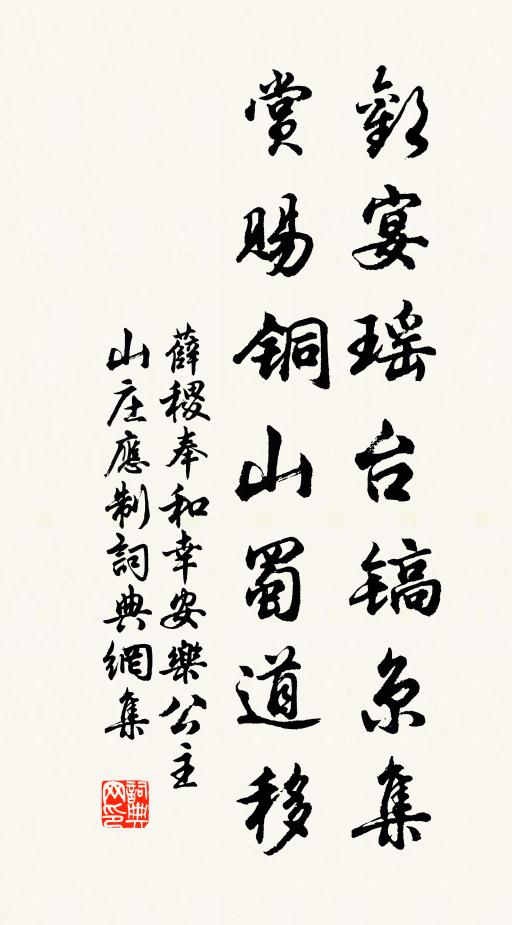 歡宴瑶台镐京集
賞賜铜山蜀道移
薛稷奉和幸安樂公主
山庄應制詞典網集
詞典网印